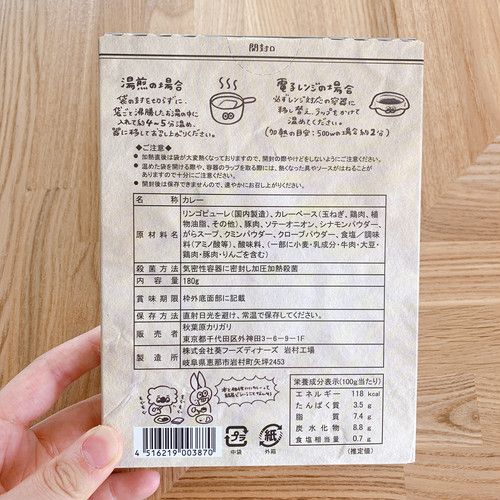 開封口
湯煎の場合
袋の封を切らずに、
袋ごと沸騰したお湯の中に
入れて約4~5分温め、
器に移してお召し上がりください。
電子レンジの場合
必ずレンジ対応の容器に
移し替え、ラップをかけて
温めてください。
(加熱の目安:500wの場合約2分)
◆ご注意◆
● 加熱直後は袋が大変熱くなっておりますので、開封の際やけどをしないようにご注意ください。
● 温めた袋を開ける際や、容器のラップを取る際には、熱くなった具やソースがはねることが
ありますので十分にご注意ください。
● 開封後は保存できませんので、速やかにお召し上がりください。
名称 カレー
原材料名 リンゴピューレ(国内製造)、カレーペース(玉ねぎ、鶏肉、植
物油脂、その他)、豚肉、ソテーオニオン、シナモンパウダー、
がらスープ、クミンパウダー、クローブパウダー、食塩/調味
料(アミノ酸等)、酸味料、(一部に小麦・乳成分・牛肉・大豆・
鶏肉・豚肉・りんごを含む)
殺菌方法 気密性容器に密封し加圧加熱殺菌
内容量 180g
賞味期限 枠外底面部に記載
保存方法 直射日光を避け、常温で保存してください。
販売者 秋葉原カリガリ
東京都千代田区外神田3-6-9-1F
製造所 株式会社葵フーズディナーズ 岩村工場
岐阜県恵那市岩村町矢坪2453
栄養成分表示(100g当たり)
エネルギー 118 kcal
たんぱく質 3.5 g
脂質 7.4 g
炭水化物 8.8 g
食塩相当量 0.7 g
(推定値)
4 516219 003870
プラ
中袋
紙
外箱